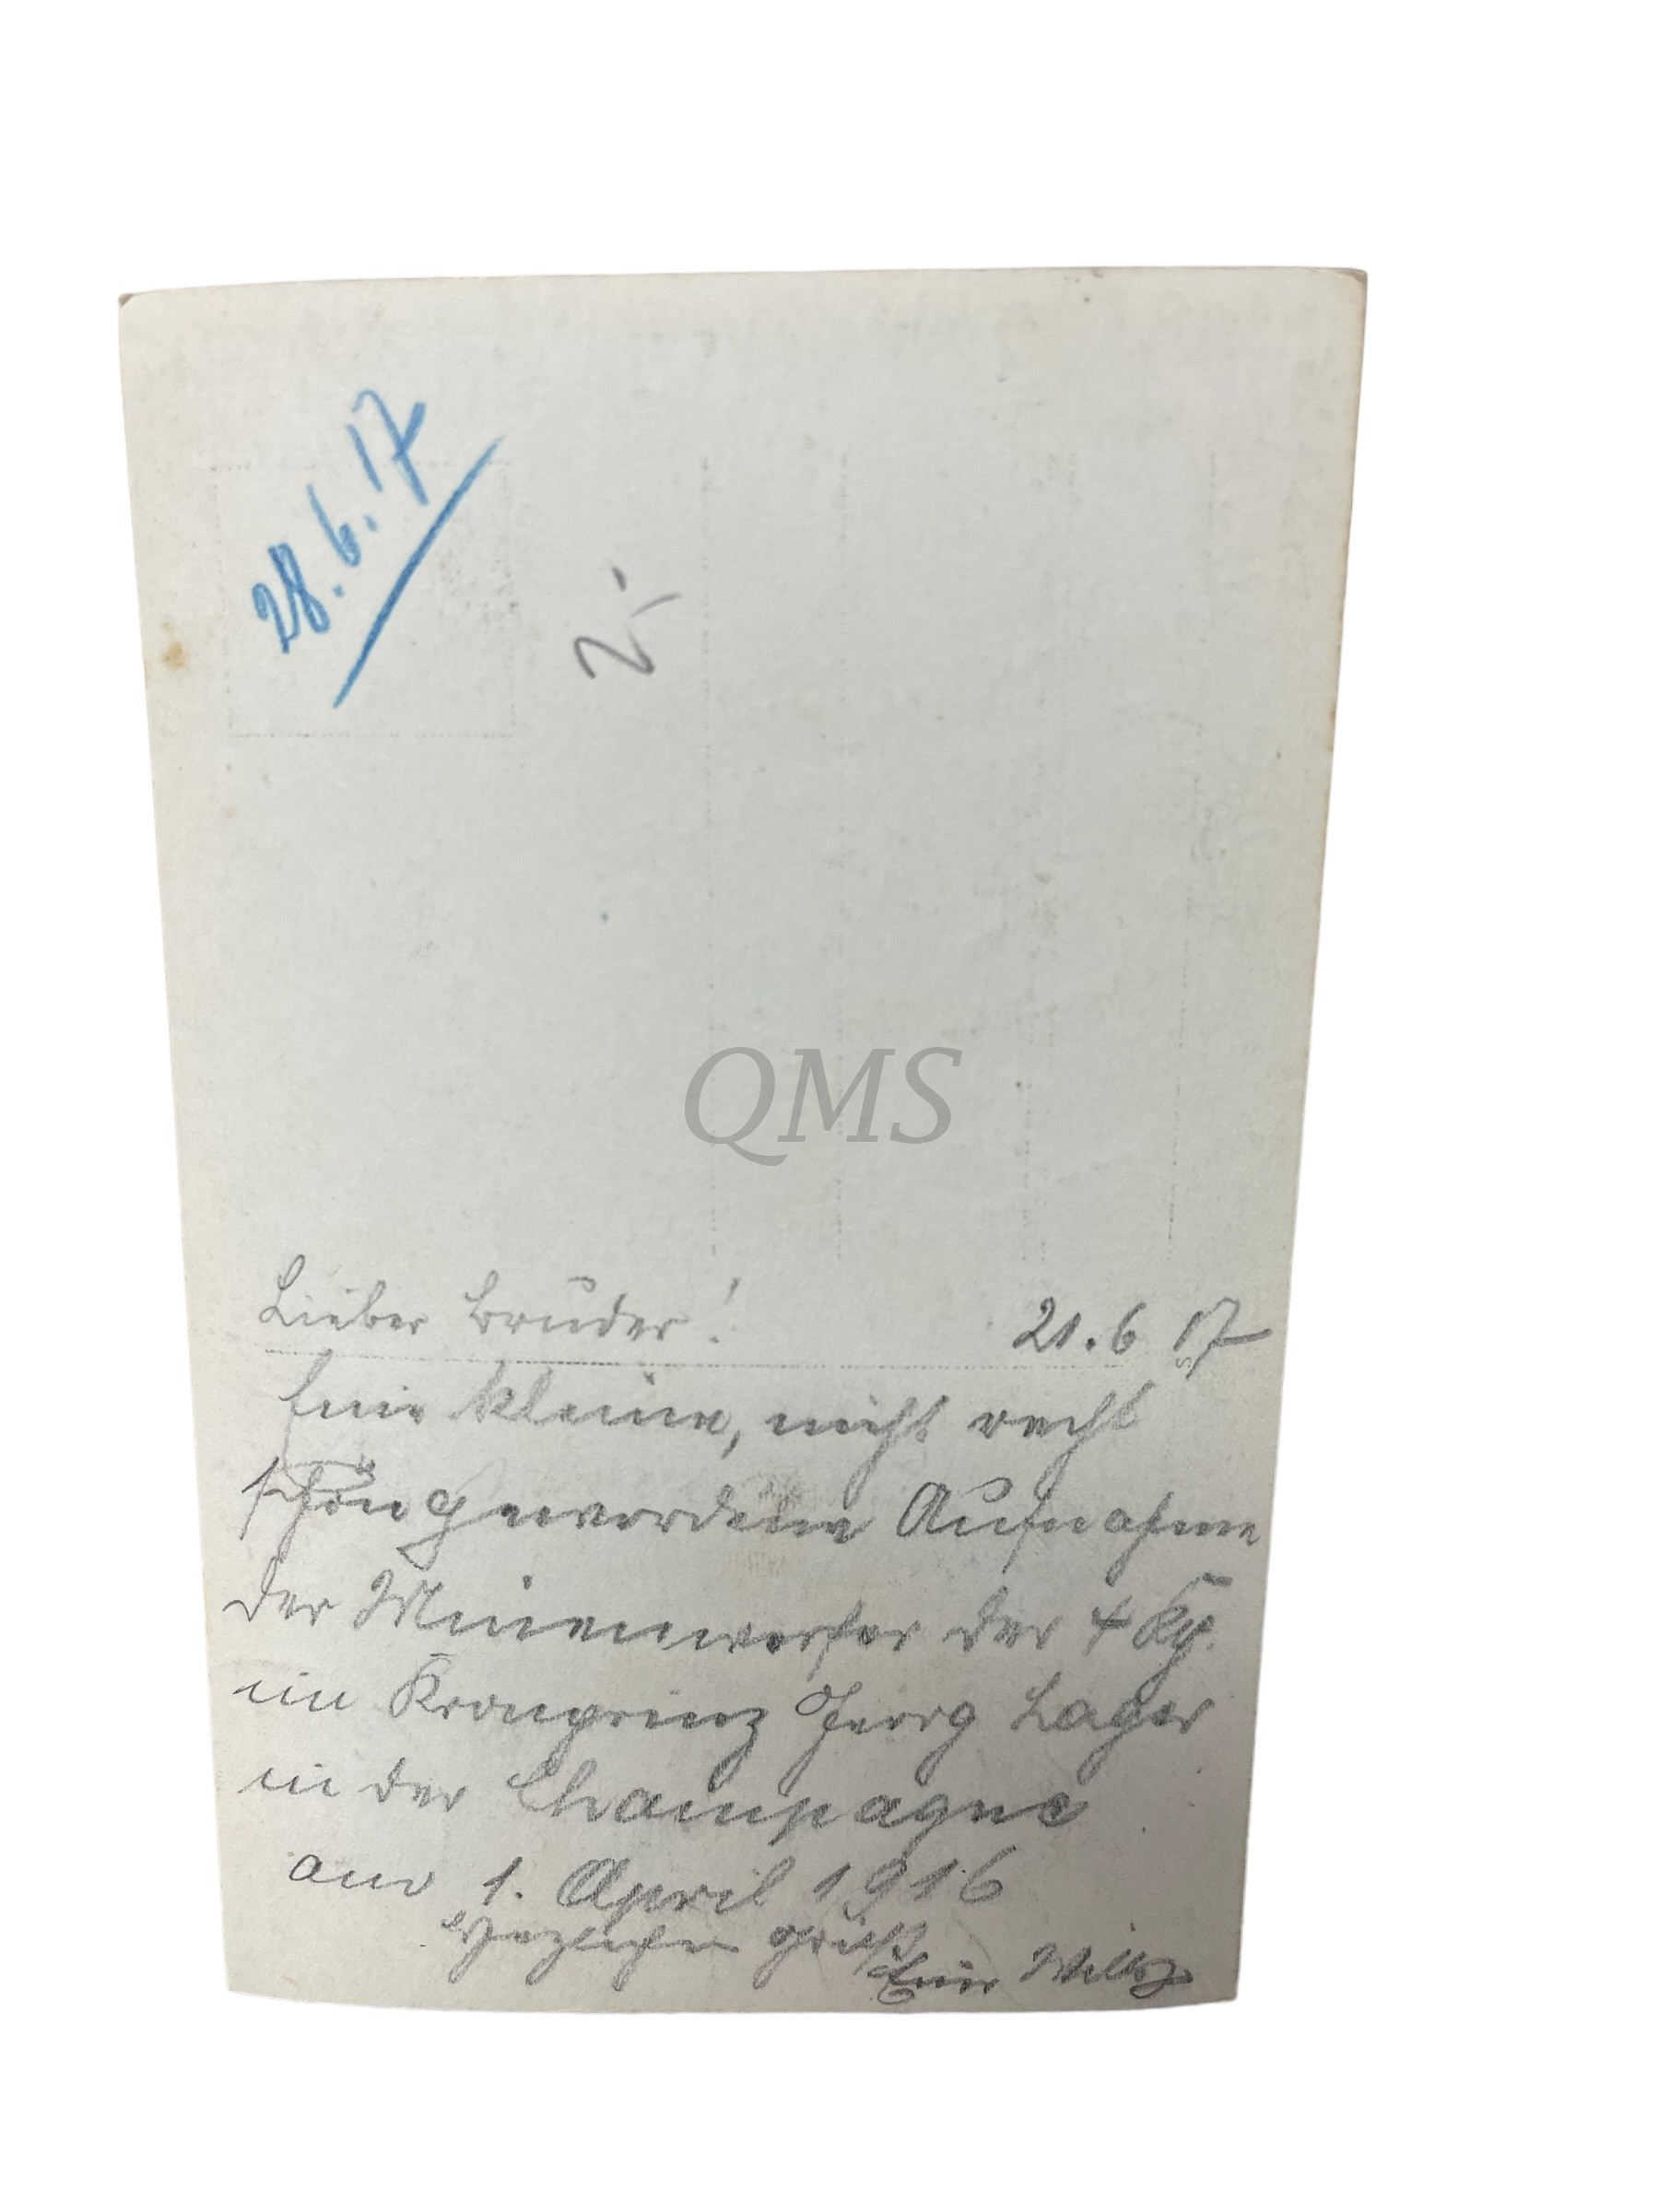 28.6.17
2,-
QMS
Lieber Bruder! 21.6 17
Eine kleine, nicht recht
schön gewordene Aufnahme
der Minenwerfer der 4 Kp.
im Kronprinz Georg Lager
in der Champagne
am 1. April 1916
Herzlichen Gruß
Dein Willy